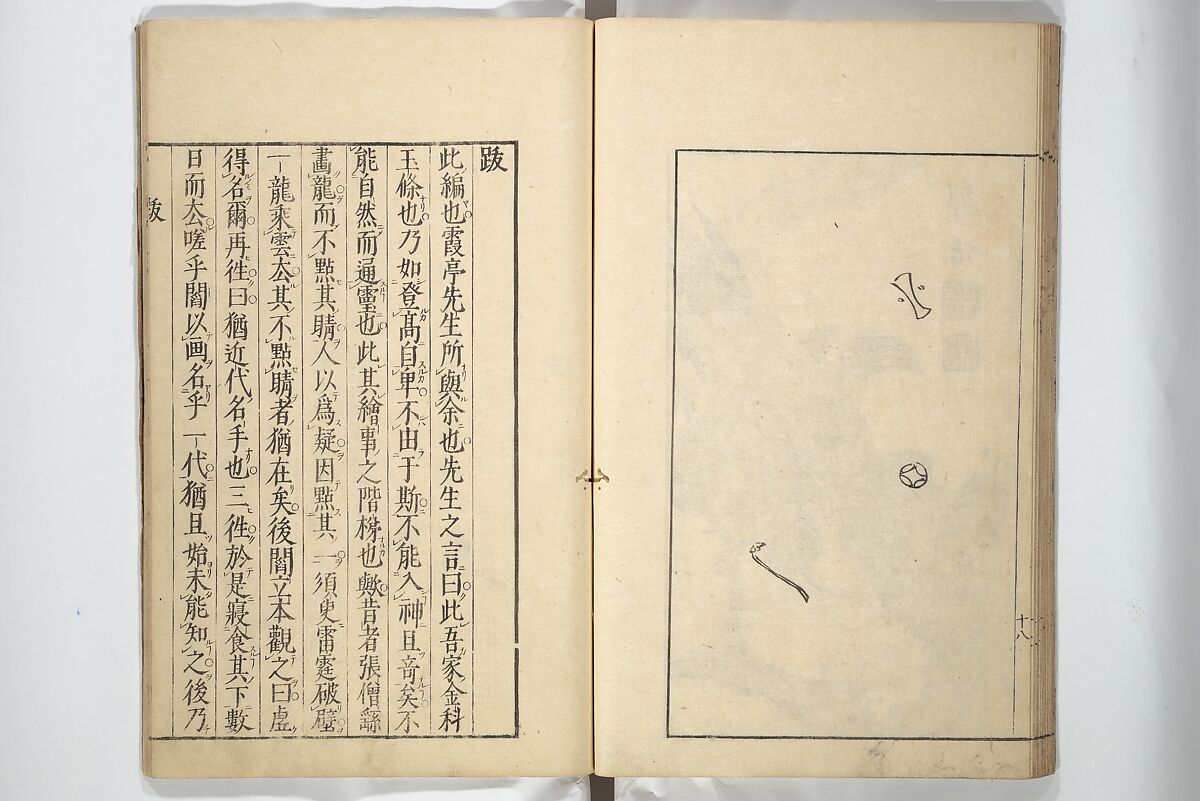 十八
跋
此編也霞亭先生所與余也先生之言曰此吾家金科
玉條也乃如登高自卑不由于斯不能入神且竒矣不
能自然而通靈也此其繪事之階梯也歟昔者張僧繇
畵龍而不點其睛人以爲疑因點其一須臾雷霆破壁
一龍乘雲去其不點睛者猶在矣後閻立本觀之曰虚
得名爾再徃曰猶近代名手也三徃於是寢食其下數
日而去嗟乎閻以画名乎一代猶且始未能知之後乃
跋